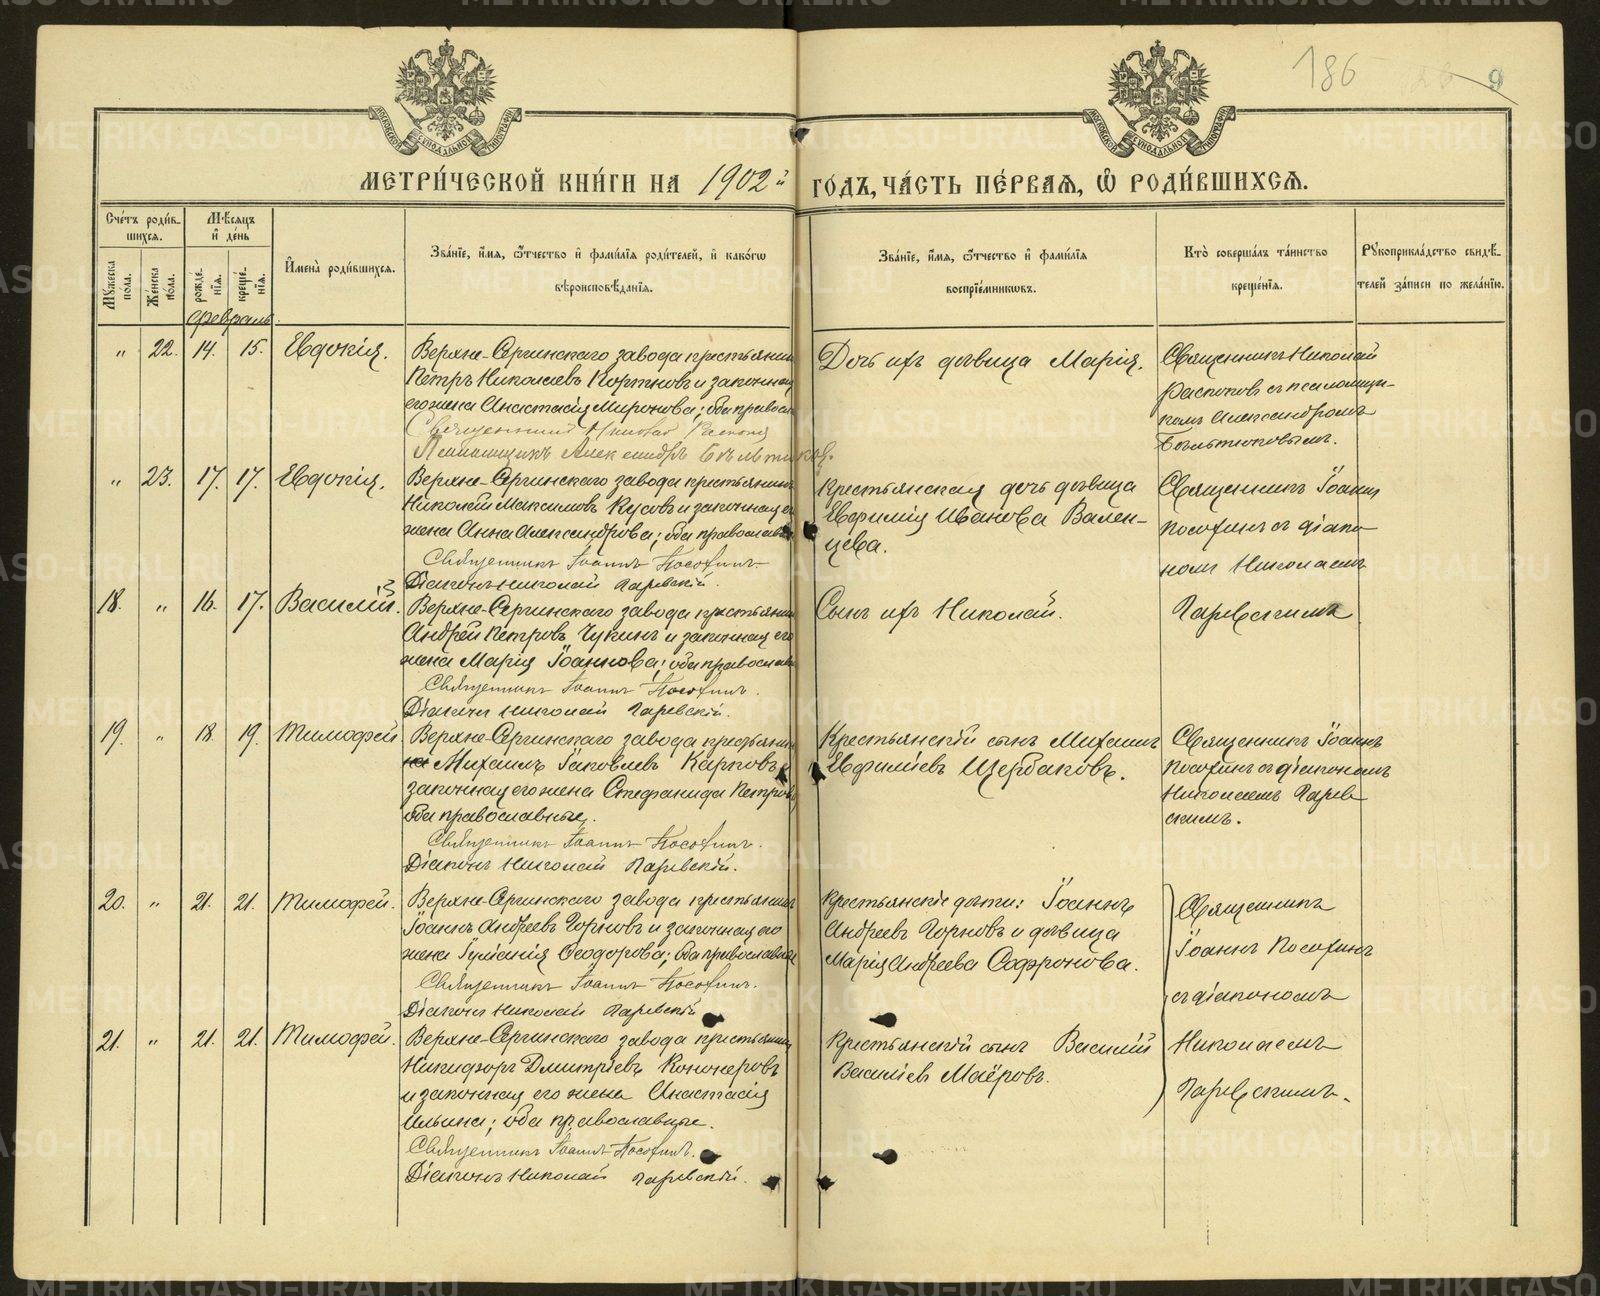 186 9
МЕТРИ́ЧЕСКОЙ КНИ́ГИ НА 1902й ГО́ДЪ, ЧА́СТЬ ПЕ́РВАѦ, Ѡ҆ РОДИ́ВШИХСѦ.
Сче́тъ роди́вшихсѧ.
Мꙋ́жеска пола.
Же́нска по́ла.
Мѣ́сѧцъ и҆ де́нь
рожде́нїѧ.
креще́нїѧ.
И҆мена̀ роди́вшихсѧ.
Зва́нїе, и҆́мѧ, ѻ҆́тчество и҆ фами́лїѧ роди́телей, и҆ како́гѡ
вѣроисповѣ́данїѧ.
Зва́нїе, и҆́мѧ, ѻ҆́тчество и҆ фами́лїѧ
воспрїе́мникѡвъ.
Кто̀ соверша́лъ та́инство
креще́нїѧ.
Рꙋкоприкла́дство свидѣ́-
телей за́писи по жела́нїю.
Февраль.
" 22. 14. 15. Евдокія.
Верхне-Сергинскаго завода крестьянинъ
Петръ Николаевъ Кортновъ и законная
его жена Анастасія Миронова; оба правосл
Священникъ Николай Распопов
Псаломщикъ Александръ Бѣльтюковъ.
Дочь ихъ дѣвица Марія.
Священникъ Николай
Распоповъ съ псаломщи-
комъ Александромъ
Бѣльтюковымъ.
" 23. 17. 17. Евдокія.
Верхне-Сергинскаго завода крестьянинъ
Николай Максимовъ Кусовъ и законная е
жена Анна Александрова; оба православн
Священникъ Іоаннъ Посохинъ
Діаконъ Николай Паревскій.
Крестьянская дочь дѣвица
Евфимія Иванова Вален-
цева.
Священникъ Іоаннъ
Посохинъ съ діако-
номъ Николаемъ
18. " 16. 17. Василій.
Верхне-Сергинскаго завода крестьянин
Андрей Петровъ Чукинъ и законная его
жена Марія Іоаннова; оба православн
Священникъ Іоаннъ Посохинъ.
Діаконъ Николай Паревскій.
Сынъ ихъ Николай.
Паревскимъ
19. " 18. 19. Тимофей.
Верхне-Сергинскаго завода крестьянин
Михаилъ Іаковлевъ Карповъ и
законная его жена Стефанида Петров
оба православные.
Священникъ Іоаннъ Посохинъ.
Діаконъ Николай Паревскій.
Крестьянскій сынъ Михаилъ
Евфиміевъ Щербаковъ.
Священникъ Іоаннъ
Посохинъ съ діакономъ
Николаемъ Парев-
скимъ.
20. " 21. 21. Тимофей.
Верхне-Сергинскаго завода крестьянинъ
Іоаннъ Андреевъ Горновъ и законная его
жена Іуліанія Феодорова; оба православные
Священникъ Іоаннъ Посохинъ.
Діаконъ Николай Паревскій
Крестьянскіе дѣти: Іоаннъ
Андреевъ Горновъ и дѣвица
Марія Андреева Софронова.
Священникъ
Іоаннъ Посохинъ
съ діакономъ
21. " 21. 21. Тимофей.
Верхне-Сергинскаго завода крестьянин
Никифоръ Дмитріевъ Кононеровъ
и законная его жена Анастасія
Ильина; оба православные.
Священникъ Іоаннъ Посохинъ.
Діаконъ Николай Паревскій.
Крестьянскій сынъ Василій
Василіевъ Маёровъ.
Николаемъ
Паревскимъ.